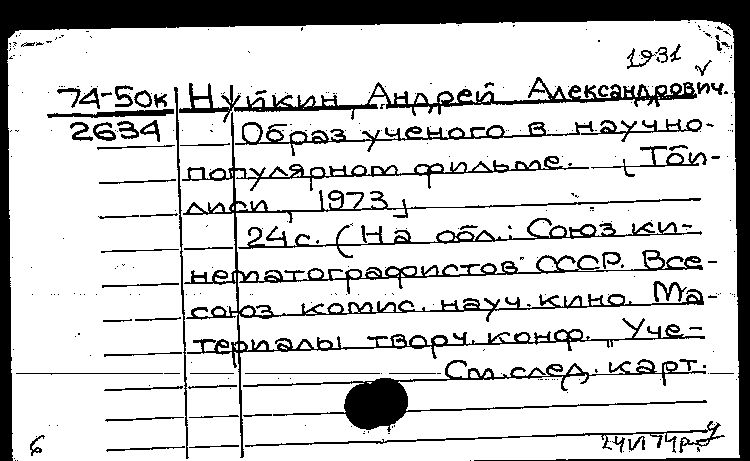 1931
74-50к Нуйкин, Андрей Александрович.
2634 Образ ученого в научно-
популярном фильме. [Тби-
лиси, 1973]
24 с. (На обл.: Союз ки-
нематографистов СССР. Все-
союз. комис. науч. кино. Ма-
териалы творч. конф. „Уче-
См. след. карт.
6